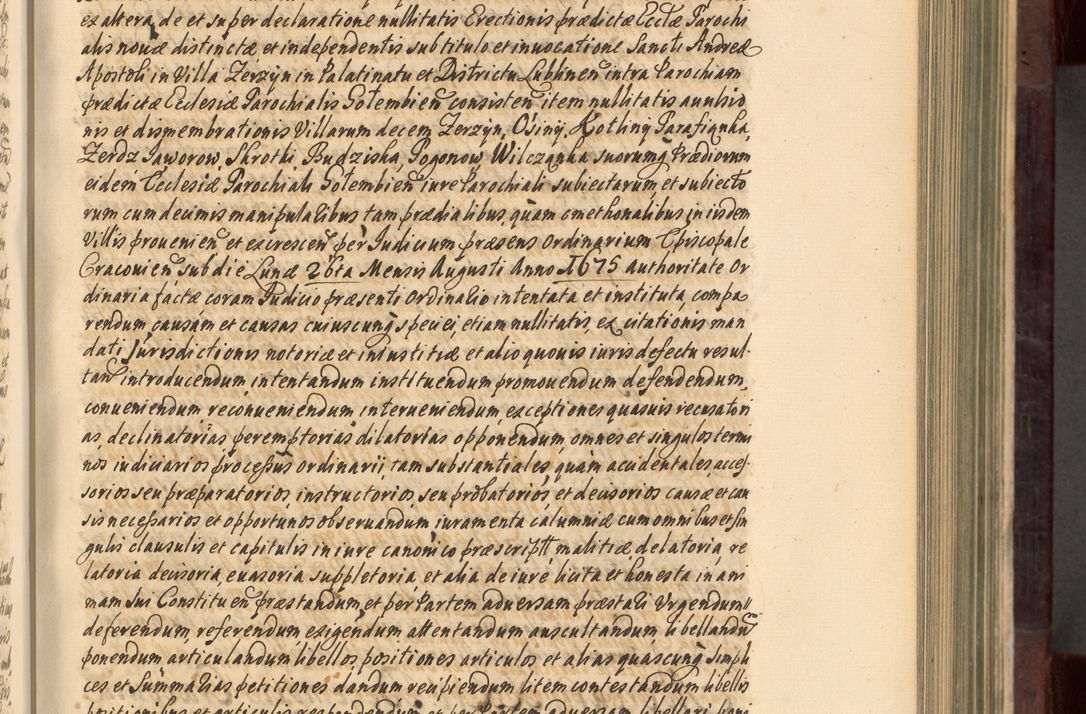 ex altera, de et super declaratione nullitatis Erectionis prædictæ Ecclæ Parochi
alis nouæ distinctæ, et independentis sub titulo et inuocatione Sancti Andreæ
Apostoli in Villa Zerzyn in Palatinatu et Districtu Lublinen intra Parochiam
prædictæ Ecclesiæ Parochialis Gołembien consisten item nullitatis auulsio
nis et dismembrationis Villarum decem Zerzyn, Osiny, Kotliny Parafiqnka,
Zerdz Jaworow, Skrotki, Budziska, Pogonow, Wilczanka suorumq Prædiorum
eidem Ecclesiæ Parochiali Gołembien iure Parochiali subiectarum et subiecto
rum cum decimis manipulalibus tam prædialibus, quam cmethonalibus in iisdem
Villis prouenien et excrescen per Iudicium præsens Ordinarium Episcopale
Cracouien sub die Lunæ 26ta Mensis Augusti Anno 1675 authoritate Or
dinaria factæ coram Iudicio præsenti Ordinario intentata et instituta, compa
rendum causam et causas cuiuscunq speciei, etiam nullitatis, ex citationis man
dati Jurisdictionis notoriæ et iniustitiæ et alio quouis iuris defectu resul-
tan introducendum intentandum instituendum promouendum defendendum,
conueniendum reconueniendum interueniendum exceptiones quasuis recusatori
as, declinatorias peremptorias dilatorias opponendum, omnes et singulos termi
nos iudiciarios processus ordinarii, tam substantiales, quam accidentales, acces-
sorios seu præparatorios, instructorios, seu probatorios, et decisorios causæ et cau
sis necessarios et opportunos obseruandum iuramenta calumniæ cum omnibus et sin
gulis clausulis et capitulis in iure canonico præscriptt malitiæ delatoria, re
latoria decisoria, euasoria suppletoria, et alia de iure licita et honesta in ani
mam sui Constituen præstandum, et per Partem aduersam præstari Vrgendum
deferendum, referendum exigendum attentandum auscultandum libellandu
ponendum articulandum libellos positiones articulos et alias quascunq simpli
ces et Summarias petitiones dandum recipiendum litem contestandum libellis
positionibus et articulis respondendum et per Partem aduersam libellari